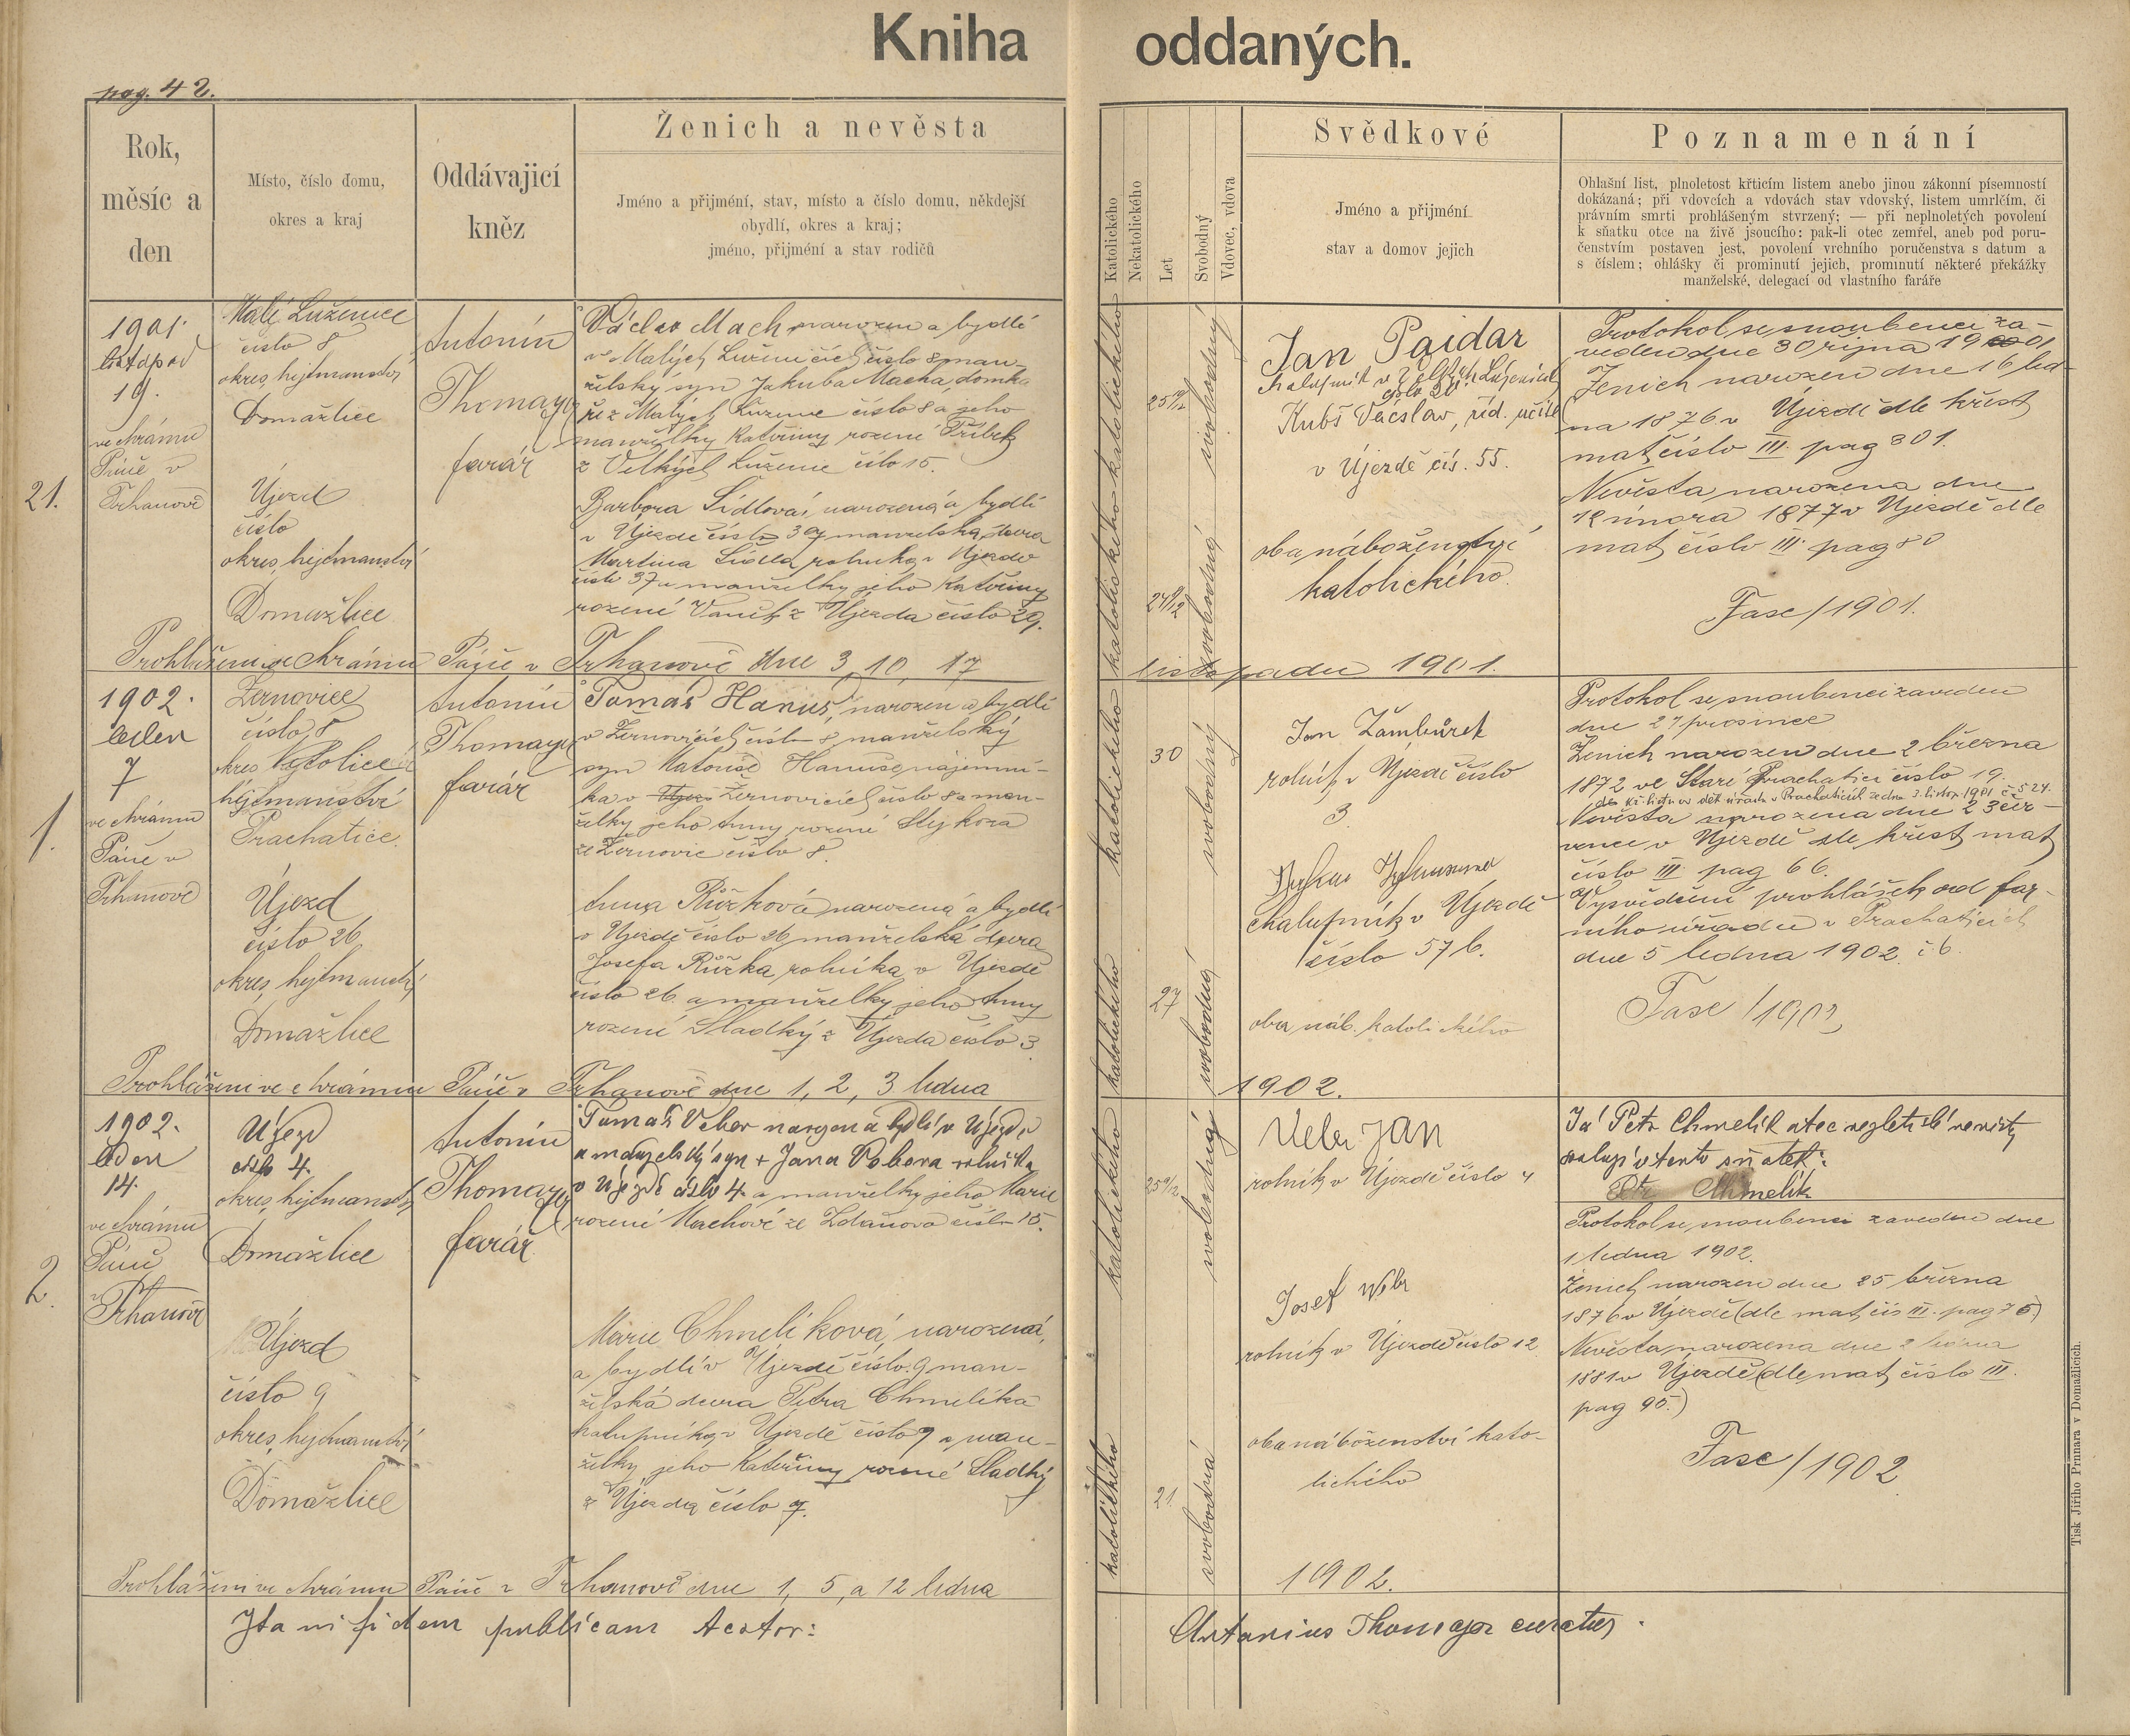 Kniha oddaných.
pag. 42.
Rok,
měsíc a
den
Místo, číslo domu,
okres a kraj
Oddávajicí
kněz
Ženich a nevěsta
Jméno a přijmení, stav, místo a číslo domu, někdejší
obydlí, okres a kraj;
jméno, přijmení a stav rodičů
Katolického
Nekatolického
Let
Svobodný
Vdovec, vdova
Svědkové
Jméno a přijmení
stav a domov jejich
Poznamenání
Ohlašní list, plnoletost křticím listem anebo jinou zákonní písemností
dokázaná; při vdovcích a vdovách stav vdovský, listem umrlčím, či
právním smrti prohlášeným stvrzený; — při neplnoletých povolení
k sňatku otce na živě jsoucího: pak-li otec zemřel, aneb pod poru-
čenstvím postaven jest, povolení vrchního poručenstva s datum a
s číslem; ohlášky či prominutí jejich, prominutí některé překážky
manželské, delegací od vlastního faráře
21.
1901.
listopad
19.
ve chrámu
Páně v
Trhanově
Malé Luženice
číslo 8
okres, hejtmanství
Domažlice
Újezd
číslo
okres, hejtmanství
Domažlice
Antonín
Thomayer
farář
Václav Mach, narozen a bydlí
v Malých Luženicích číslo 8 man-
želský syn Jakuba Macha, domká
ře z Malých Luženic číslo 8 a jeho
manželky Kateřiny rozené Příbek
z Velkých Luženic číslo 15.
Barbora Sídlová, narozená a bydlí
v Újezdě číslo 37 manželská dcera
Martina Sídla, rolníka v Újezdě
číslo 37 a manželky jeho Kateřiny
rozené Vaněk z Újezda číslo 29.
katolického
25 8/12
svobodný
katolického
24 9/12
svobodná
Jan Pajdar
chalupník v Luženicích
číslo 20
Kubš Václav, říd. učitel
v Újezdě čís. 55.
oba náboženství
katolického.
Protokol se snoubenci za-
veden dne 30 října 1901
Ženich narozen dne 16 led-
na 1876 v Újezdě dle křest
mat číslo III. pag 301.
Nevěsta narozena dne
12 února 1877 v Újezdě dle
mat číslo III. pag 80
Fasc/1901.
Prohlášeni ve chrámu Páně v Trhanově dne 3, 10, 17 listopadu 1901.
1.
1902.
leden
7
ve chrámu
Páně v
Trhanově
Žernovice
číslo 8
okres Netolice
hejtmanství
Prachatice.
Újezd
číslo 26
okres, hejtmanství
Domažlice
Antonín
Thomayer
farář
Tomáš Hanuš, narozen a bydlí
v Žernovicích číslo 8, manželský
syn Matouše Hanuše, nájemní-
ka v Žernovicích číslo 8 a man-
želky jeho Anny rozené Sýkora
ze Žernovic číslo 8.
Anna Růžková narozená a bydlí
v Újezdě číslo 26, manželská dcera
Josefa Růžka, rolníka v Újezdě
číslo 26 a manželky jeho Anny
rozené Sladký z Újezda číslo 3.
katolického
30
svobodný
katolického
27
svobodná
Jan Žambůrek
rolník v Újezdě číslo
3.
chalupník v Újezdě
číslo 57 b.
oba náb. katolického
Protokol se snoubenci zaveden
dne 27 prosince
Ženich narozen dne 2 března
1872 ve Staré Prachatici číslo 19.
Nevěsta narozena dne 23 čer-
vence v Újezdě dle křest mat
číslo III pag 66.
Vysvědčení prohlášek od far-
ního úřadu v Prachaticích
dne 5 ledna 1902. č. 6.
Fasc/1902
Prohlášeni ve chrámu Páně v Trhanově dne 1, 2, 3 ledna 1902.
2.
1902.
leden
14.
ve chrámu
Páně
v
Trhanově
Újezd
číslo 4.
okres, hejtmanství
Domažlice
Újezd
číslo 9
okres, hejtmanství
Domažlice
Antonín
Thomayer
farář.
Tomáš Veber narozen a bydlí v Újezdě
a manželský syn + Jana Vebera rolníka
v Újezdě číslo 4. a manželky jeho Marie
rozené Machové ze Zdanova číslo 15.
Marie Chmelíková, narozená,
a bydlí v Újezdě číslo 9 man-
želská dcera Petra Chmelíka
chalupníka v Újezdě číslo 9 a man-
želky jeho Kateřiny rozené Sladký
z Újezda číslo 7.
katolického
25 9/12
svobodný
katolického
21
svobodná
Veber Jan
rolník v Újezdě číslo 4
Josef Vebr
rolník v Újezdě číslo 12
oba náboženství kato-
lického
Já Petr Chmelík otec nezletilé nevěsty
svoluji v tento sňatek:
Petr Chmelík
Protokol se snoubenci zaveden dne
1 ledna 1902.
Ženich narozen dne 25 března
1876 v Újezdě (dle mat čís III. pag 75)
Nevěsta narozena dne 2 ledna
1881 v Újezdě (dle mat číslo III.
pag 95.)
Fasc/1902
Prohlášeni ve chrámu Páně v Trhanově dne 1, 5, a 12 ledna 1902.
Ita in fidem publicam testor: Antonius Thomayer curatus.
Tisk Jiřího Prunara v Domažlicích.